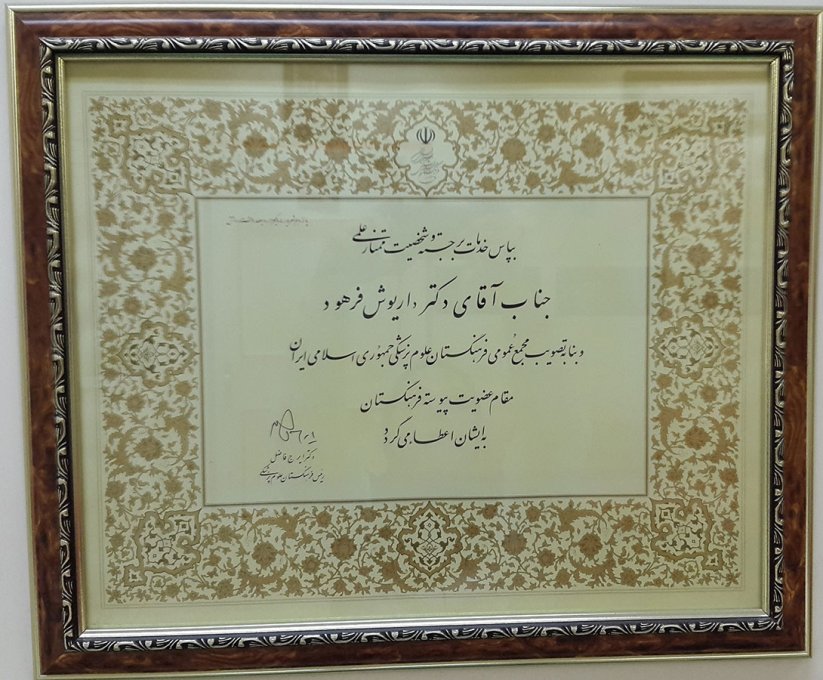 بپاس خدمات برجسته و شخصیت ممتاز علمی
جناب آقای دکتر داریوش فرهود
و بنا بتصویب مجمع عمومی فرهنگستان علوم پزشکی جمهوری اسلامی ایران
مقام عضویت پیوسته فرهنگستان
به ایشان اعطا می گردد
دکتر ایرج فاضل
رئیس فرهنگستان علوم پزشکی